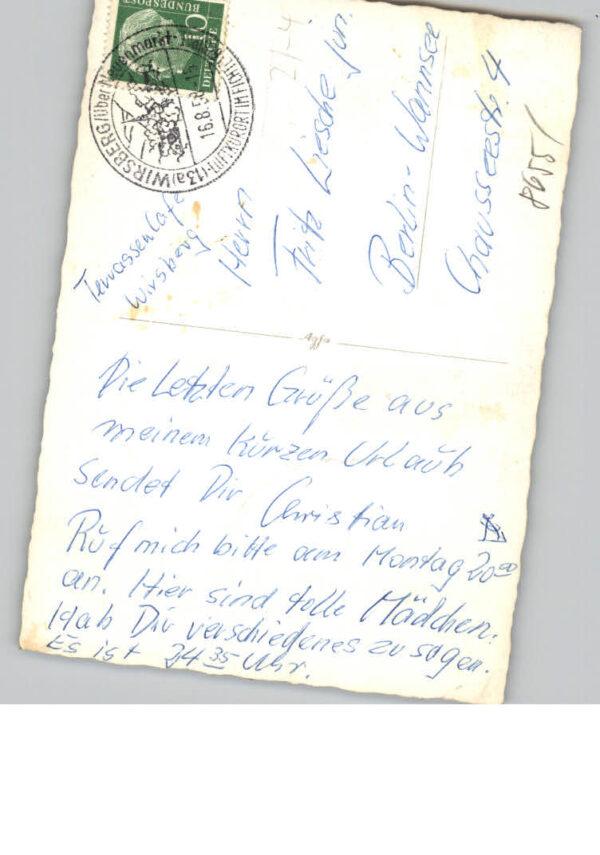 DEUTSCHE
BUNDESPOST
10
(13a) WIRSBERG / über Neuenmarkt
LUFTKURORT IM FICHTEL
16.8.5
21-4
Terrassencafe
Wirsberg
Herrn
Fritz Liesche jun.
Berlin-Wannsee
Chausseestr. 4
86551
Agfa
Die Letzten Grüße aus
meinem kurzen Urlaub
sendet Dir Christian
Ruf mich bitte am Montag 20 00
an. Hier sind tolle Mädchen.
Hab Dir verschiedenes zu sagen.
Es ist 24 35 Uhr.